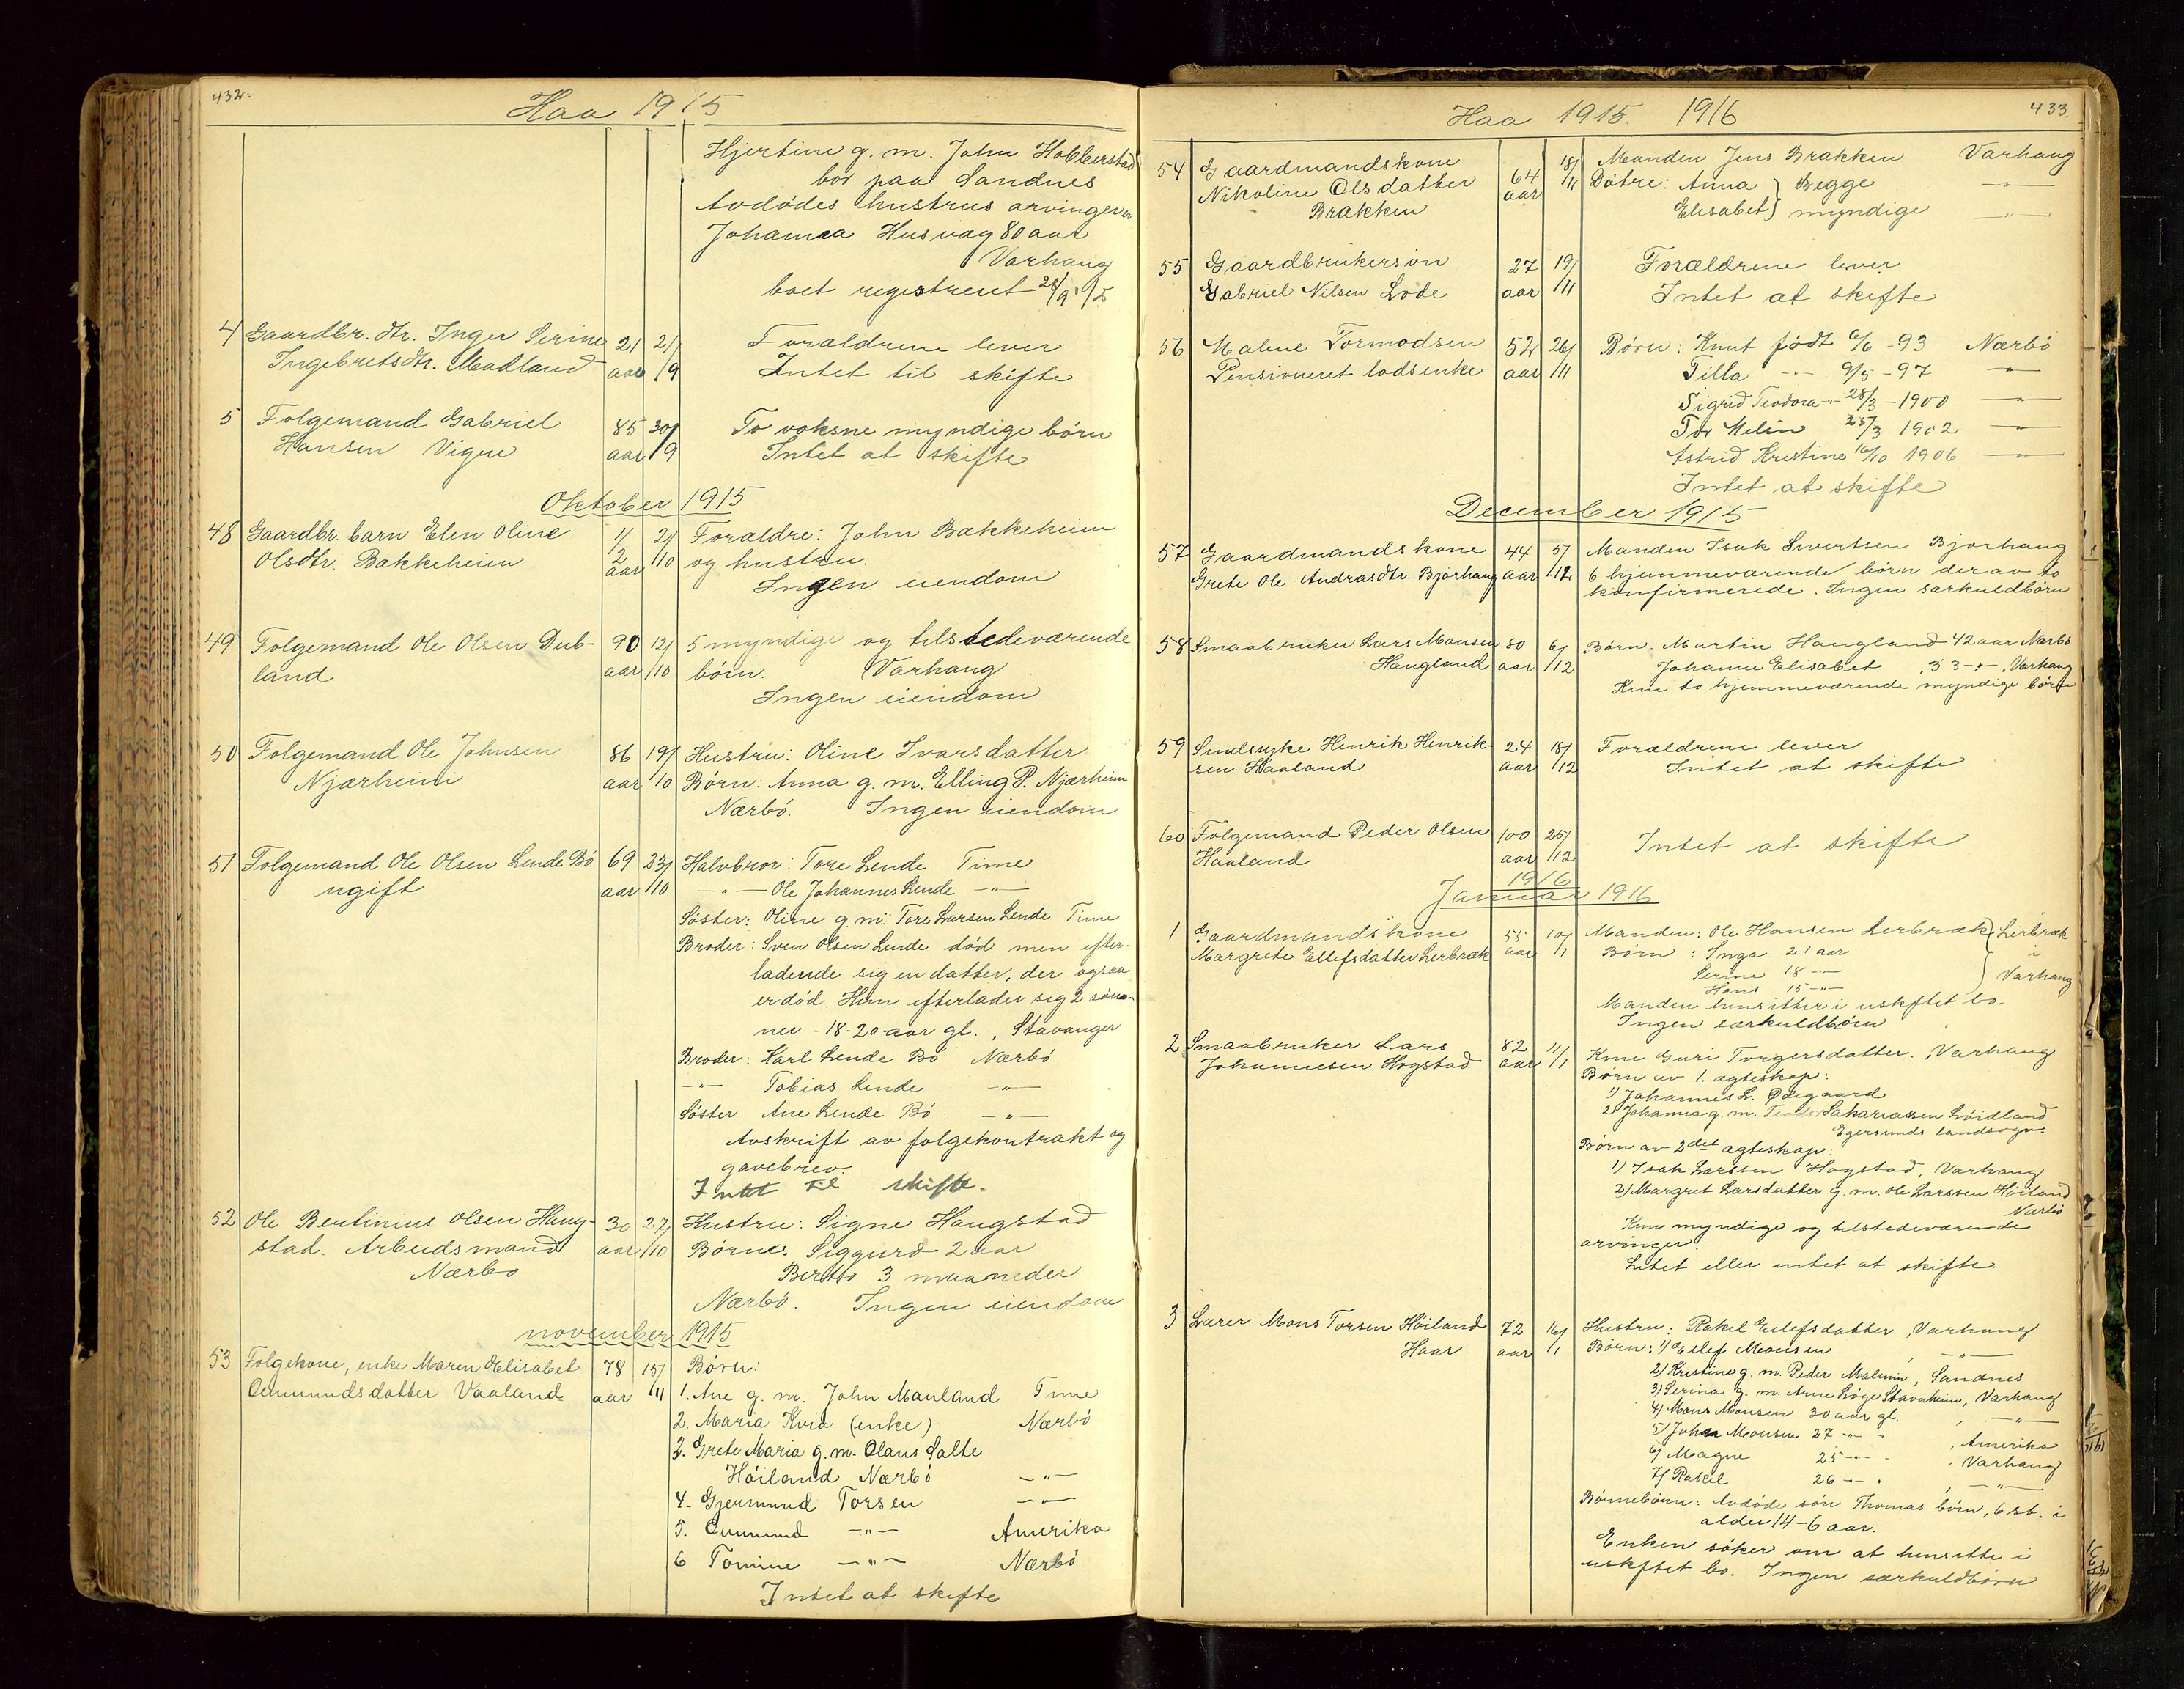 432.
Haa 1915
Hjertine g. m. John Hobberstad
bor paa Sandnes
Avdødes hustrus arvinger er
Johanna Husvag 80 aar
Varhaug
boet registreret 28/9 15
4 Gaardbr. dtr. Inger Serine 21 21/
Ingebretsdtr. Madland aar /9
Forældrene lever
Intet til skifte
5 Folgemand Gabriel 85 30/ To voksne myndige børn
Hansen Vigre aar /9 Intet at skifte
Oktober 1915
48 Gaardbr. barn Elen Oline 1/2 2/ Forældre: John Bakkeheim
Olsdtr. Bakkeheim aar /10 og hustru.
Ingen eiendom
49 Folgemand Ole Olsen Dub- 90 12/ 5 myndige og tilstedeværende
land aar /10 børn. Varhaug
Ingen eiendom
50 Folgemand Ole Johnsen 86 19/ Hustru: Oline Ivarsdatter
Njærheim aar /10 Børn: Anna g. m. Elling P. Njærheim
Nærbø. Ingen eiendom
51 Folgemand Ole Olsen Lende Bø 69 23/ Halvbror: Tore Lende Time
ugift aar /10 -"- Ole Johannes Lende -"-
Søster: Oline g. m. Tore Larsen Lende Time
Broder: Sven Olsen Lende død men efter-
ladende sig en datter, der ogsaa
er død. Hun efterlader sig 2 sønn-
ner - 18-20-aar gl., Stavanger
Broder: Karl Lende Bø Nærbø
-"- Tobias Lende -"-
Søster Ane Lende Bø -"-
Avskrift av folgekontrakt og
gavebrev.
Intet til skifte.
52 Ole Bentinius Olsen Haug- 30 27/ Hustru: Signe Haugstad
stad. Arbeidsmand aar /10 Børn: Siggurd 2 aar
Nærbø Berto 3 maaneder
Nærbø. Ingen eiendom
november 1915
53 Folgekone, enke Maren Elisabet 78 15/ Børn:
Ommundsdatter Vaaland aar /11 1. Ane g. m. John Mauland Time
2. Maria Kvia (enke) Nærbø
3. Grete Maria g. m. Olaus Salte
Høiland Nærbø -"-
4. Gjermund Torsen -"-
5. Ommund -"- Amerika
6 Tomine -"- Nærbø
Intet at skifte
433.
Haa 1915. 1916
54 Gaardmandskone 64 18/ Manden Jens Brakken Varhaug
Nikoline Olsdatter aar /11 Døtre: Anna } Begge -"-
Brakken Elisabet } myndige -"-
55 Gaardbrukersøn 27 19/ Forældrene lever
Gabriel Nilsen Lode aar /11 Intet at skifte
56 Malene Tormodsen 52 26/ Børn: Knut født 6/6 -93 Nærbø
Pensioneret lodsenke aar /11 Tilla -"- 9/5 -97 -"-
Sigrid Teodora -"- 28/3 -1900 -"-
Tor Melin 25/3 1902 -"-
Astrid Kristine 16/10 1906 -"-
Intet at skifte
December 1915
57 Gaardmandskone 44 5/ Manden Isak Sivertsen Bjorhaug
Grete Ole-Andrasdtr. Bjorhaug aar /12 6 hjemmeværende børn derav to
konfirmerede. Ingen særkuldbørn
58 Smaabruker Lars Monsen 80 6/ Børn: Martin Haugland 42 aar Nærbø
Haugland aar /12 Johanne Elisabet 33 -"-, Varhaug
Kun to hjemmeværende myndige børn
59 Sindssyke Henrik Henrik- 24 18/ Forældrene lever
sen Haaland aar /12 Intet at skifte
60 Folgemand Peder Olsen 100 25/ Intet at skifte
Haaland aar /12
1916
Januar 1916
1 Gaardmandskone 55 10/ Manden: Ole Hansen Lerbræk } Lerbræk
Margrete Ellefsdatter Lerbræk aar /1 Børn: Inga 21 aar i
Serine 18 -"- } Varhaug
Hans 15 -"-
Manden hensitter i uskiftet bo.
Ingen særkuldbørn
2 Smaabruker Lars 82 11/ Kone Guri Torgersdatter. Varhaug
Johannesen Hogstad aar /1 Børn av 1. ægteskap:
1) Johannes L. Ødegaard
2) Johanna g. m. Teodor Sakariassen Løidland
Egersunds landsogn.
Børn av 2det ægteskap:
1) Isak Larssen Hogstad, Varhaug
2) Margret Larsdatter g. m. Ole Larssen Høiland
Nærbø
Kun myndige og tilstedeværende
arvinger.
Litet eller intet at skifte
3 Lærer Mons Torsen Høiland 72 16/ Hustru: Rakel Eilefsdatter, Varhaug
Haar aar /1 Børn: 1) Ellef Monsen, -"-
2) Kristine g. m. Peder Malmin, Sandnes
3) Serina g. m. Arne Løge Stavnheim, Varhaug
4) Mons Monsen 30 aar gl. , -"-
5) John Monsen 27 -"- , Amerika
6) Magne 25 -"- , Varhaug
7) Rakel 26 -"- , -"-
Børnebørn: Avdøde søn Thomas børn, 6 st. i
alder 14-6 aar.
Enken søker om at hensitte i
uskiftet bo. Ingen særkuldbørn